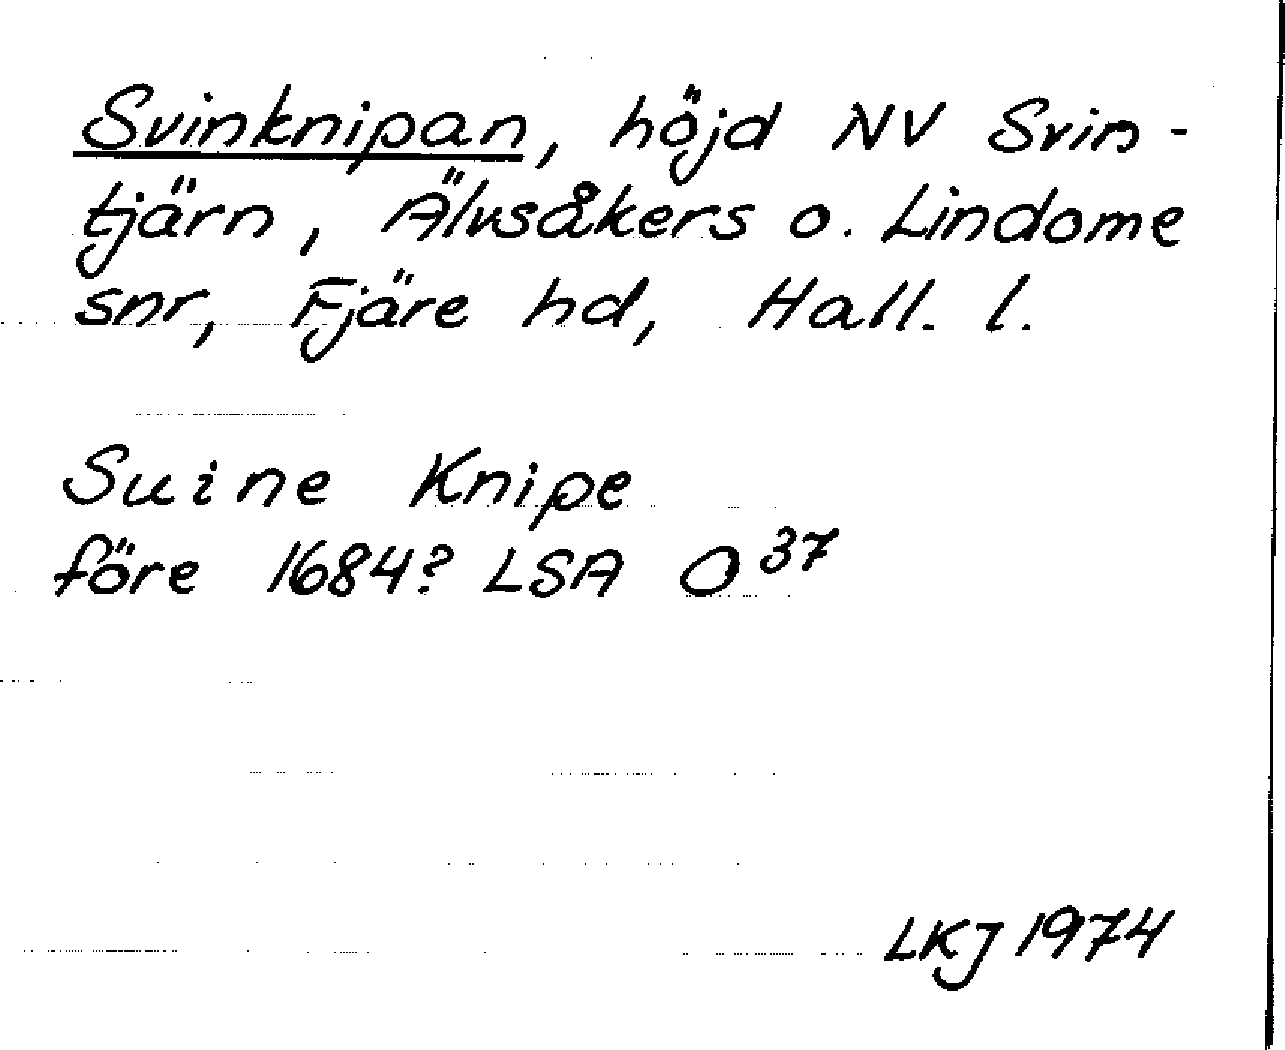 Svinknipan, höjd NV Svin-
tjärn, Älvsåkers o. Lindome
snr, Fjäre hd, Hall. l.
Suine Knipe
före 1684? LSA O 37
LKJ 1974